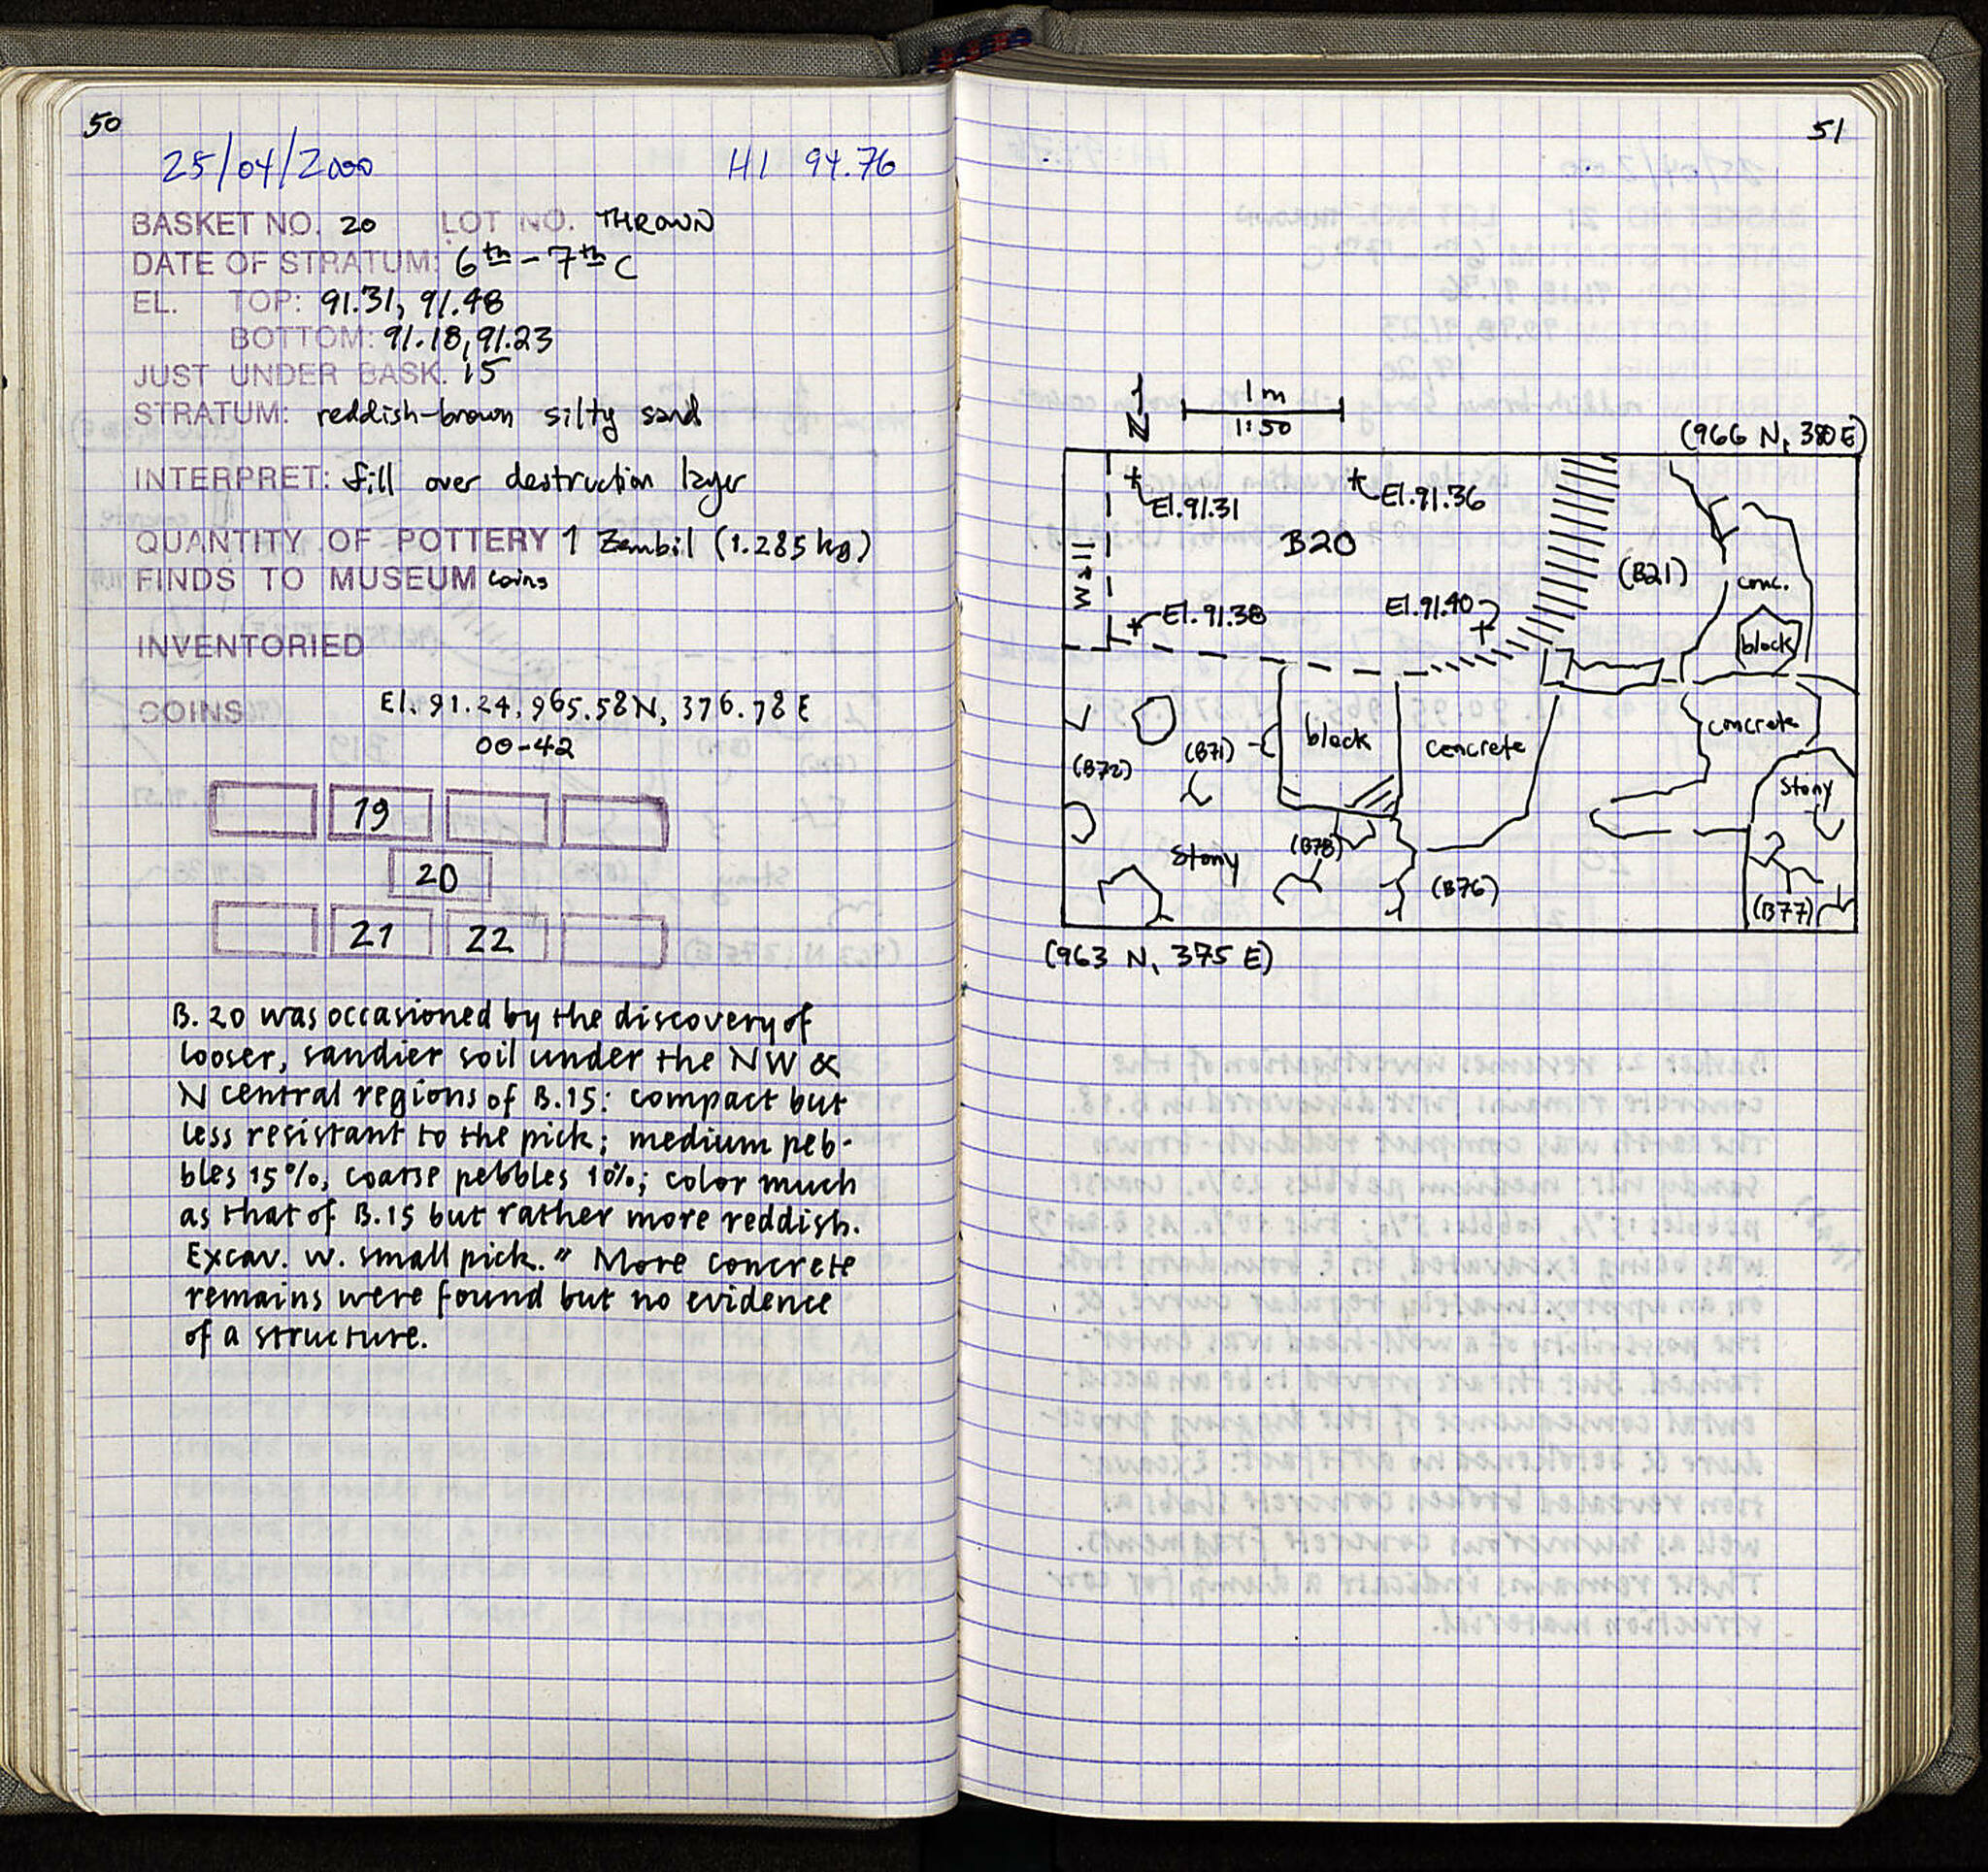 50
25/04/2000 HI 94.76
BASKET NO. 20 LOT NO. THROWN
DATE OF STRATUM: 6th - 7th C
EL. TOP: 91.31, 91.48
BOTTOM: 91.18, 91.23
JUST UNDER BASK. 15
STRATUM: reddish-brown silty sand
INTERPRET: fill over destruction layer
QUANTITY OF POTTERY 1 Zembil (1.285 kg)
FINDS TO MUSEUM coins
INVENTORIED
COINS El. 91.24, 965.58N, 376.78 E
00-42
19
20
21 22
B. 20 was occasioned by the discovery of
looser, sandier soil under the NW &
N central regions of B.15: compact but
less resistant to the pick; medium peb-
bles 15%, coarse pebbles 10%; color much
as that of B.15 but rather more reddish.
Excav. w. small pick." More concrete
remains were found but no evidence
of a structure.
51
N
1 m
1:50
(966 N, 380 E)
El. 91.31
El. 91.36
B20
Wall
(B21)
conc.
El. 91.38
El. 91.40
block
(B72)
(B71)
block
concrete
concrete
Stony
Stony
(B78)
(B76)
(B77)
(963 N, 375 E)